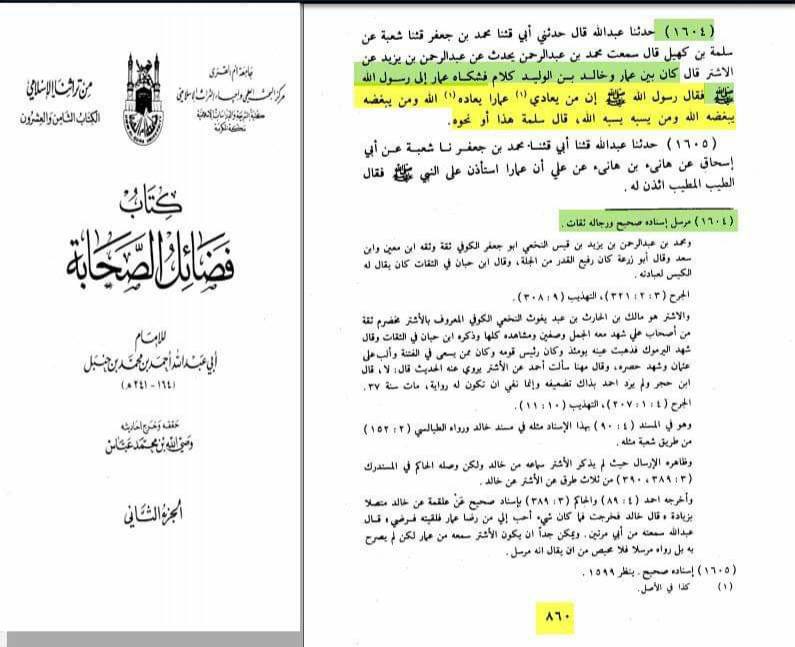 جامعة أم القرى
مركز البحث العلمي وإحياء التراث الإسلامي
كلية الشريعة والدراسات الإسلامية
مكة المكرمة
من تراثنا الإسلامي
الكتاب الثامن والعشرون
كتاب
فضائل الصحابة
للإمام
أبي عبد الله أحمد بن محمد بن حنبل
(١٦٤ - ٢٤١ هـ)
حققه وخرج أحاديثه
وصي الله بن محمد عباس
الجزء الثاني
(١٦٠٤) حدثنا عبدالله قال حدثني أبي قثنا محمد بن جعفر قثنا شعبة عن
سلمة بن كهيل قال سمعت محمد بن عبدالرحمن يحدث عن عبدالرحمن بن يزيد عن
الاشتر قال كان بين عمار وخالد بن الوليد كلام فشكاه عمار إلى رسول الله
ﷺ فقال رسول الله ﷺ إن من يعادي (١) عمارا يعاده (١) الله ومن يبغضه
يبغضه الله ومن يسبه يسبه الله، قال سلمة هذا أو نحوه.
(١٦٠٥) حدثنا عبدالله قثنا أبي قثنا محمد بن جعفر نا شعبة عن أبي
إسحاق عن هانىء بن هانىء عن علي أن عمارا استأذن على النبي ﷺ فقال
الطيب المطيب ائذن له.
(١٦٠٤) مرسل إسناده صحيح ورجاله ثقات.
ومحمد بن عبدالرحمن بن يزيد بن قيس النخعي ابو جعفر الكوفي ثقة وثقه ابن معين وابن
سعد وقال أبو زرعة كان رفيع القدر من الجلة، وقال ابن حبان في الثقات كان يقال له
الكيس لعبادته.
الجرح (٣ : ٢ : ٣٢١)، التهذيب (٩ : ٣٠٨).
والاشتر هو مالك بن الحارث بن عبد يغوث النخعي الكوفي المعروف بالأشتر مخضرم ثقة
من أصحاب علي شهد معه الجمل وصفين ومشاهده كلها وذكره ابن حبان في الثقات وقال
شهد اليرموك فذهبت عينه يومئذ وكان رئيس قومه وكان ممن يسعى في الفتنة وألب على
عثمان وشهد حصره، وقال مهنا سألت أحمد عن الأشتر يروي عنه الحديث قال : لا، قال
ابن حجر ولم يرد احمد بذاك تضعيفه وإنما نفى ان تكون له رواية، مات سنة ٣٧.
الجرح (٤ : ١ : ٢٠٧)، التهذيب (١٠ : ١١).
وهو في المسند (٤ : ٩٠) بهذا الإسناد مثله في مسند خالد ورواه الطيالسي (٢ : ١٥٢)
من طريق شعبة مثله.
وظاهره الإرسال حيث لم يذكر الأشتر سماعه من خالد ولكن وصله الحاكم في المستدرك
(٣ : ٣٨٩، ٣٩٠) من ثلاث طرق عن الأشتر عن خالد.
وأخرجه احمد (٤ : ٨٩) والحاكم (٣ : ٣٨٩) بإسناد صحيح عن علقمة عن خالد متصلا
بزيادة « قال خالد فخرجت فما كان شيء أحب إلي من رضا عمار فلقيته فرضي » قال
عبدالله سمعته من أبي مرتين. ويمكن جداً ان يكون الأشتر سمعه من عمار لكن لم يصرح
به بل رواه مرسلا فلا محيص من ان يقال انه مرسل.
(١٦٠٥) إسناده صحيح. ينظر ١٥٩٩.
(١) كذا في الأصل.
٨٦٠